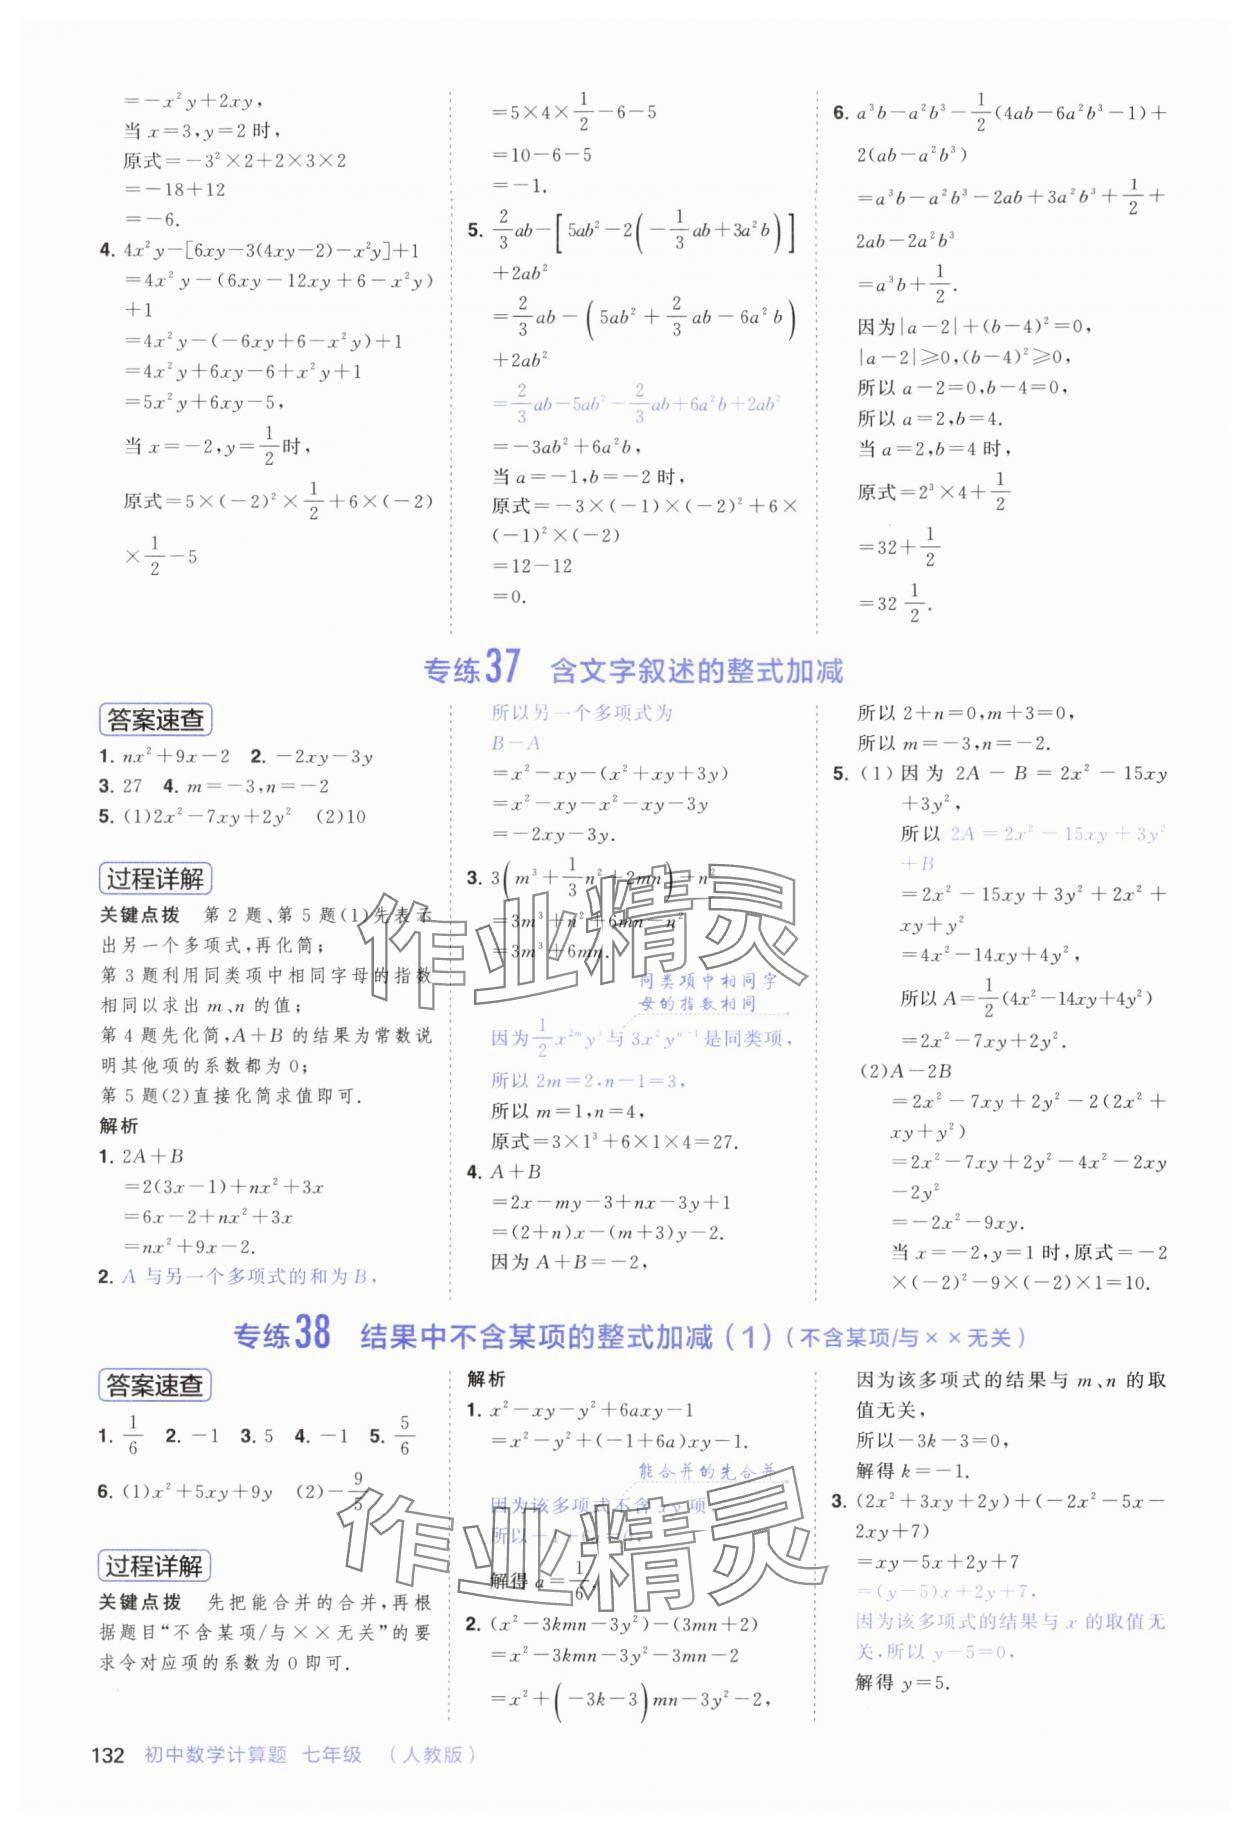 =-x²y+2xy,
当 x=3,y=2 时,
原式=-3²×2+2×3×2
=-18+12
=-6.
4. 4x²y-[6xy-3(4xy-2)-x²y]+1
=4x²y-(6xy-12xy+6-x²y)
+1
=4x²y-(-6xy+6-x²y)+1
=4x²y+6xy-6+x²y+1
=5x²y+6xy-5,
当 x=-2,y=1/2时,
原式=5×(-2)²×1/2+6×(-2)
×1/2-5
=5×4×1/2-6-5
=10-6-5
=-1.
5. 2/3ab-[5ab²-2(-1/3ab+3a²b)]
+2ab²
=2/3ab-(5ab²+2/3ab-6a²b)
+2ab²
=2/3ab-5ab²-2/3ab+6a²b+2ab²
=-3ab²+6a²b,
当 a=-1,b=-2 时,
原式=-3×(-1)×(-2)²+6×
(-1)²×(-2)
=12-12
=0.
6. a³b-a²b³-1/2(4ab-6a²b³-1)+
2(ab-a²b³)
=a³b-a²b³-2ab+3a²b³+1/2+
2ab-2a²b³
=a³b+1/2.
因为|a-2|+(b-4)²=0,
|a-2|≥0,(b-4)²≥0,
所以 a-2=0,b-4=0,
所以 a=2,b=4.
当 a=2,b=4 时,
原式=2³×4+1/2
=32+1/2
=32 1/2.
专练37 含文字叙述的整式加减
答案速查
1. nx²+9x-2 2. -2xy-3y
3. 27 4. m=-3,n=-2
5. (1)2x²-7xy+2y² (2)10
过程详解
关键点拨 第 2 题、第 5 题(1)先表示
出另一个多项式,再化简;
第 3 题利用同类项中相同字母的指数
相同以求出 m、n 的值;
第 4 题先化简,A+B 的结果为常数说
明其他项的系数都为 0;
第 5 题(2)直接化简求值即可.
解析
1. 2A+B
=2(3x-1)+nx²+3x
=6x-2+nx²+3x
=nx²+9x-2.
2. A 与另一个多项式的和为 B,
所以另一个多项式为
B-A
=x²-xy-(x²+xy+3y)
=x²-xy-x²-xy-3y
=-2xy-3y.
3. 3(m³+1/3n²+2mn)-n²
=3m³+n²+6mn-n²
=3m³+6mn.
同类项中相同字
母的指数相同
因为1/2x²ᵐy³与 3x²yⁿ⁻¹是同类项,
所以 2m=2,n-1=3,
所以 m=1,n=4,
原式=3×1³+6×1×4=27.
4. A+B
=2x-my-3+nx-3y+1
=(2+n)x-(m+3)y-2.
因为 A+B=-2,
所以 2+n=0,m+3=0,
所以 m=-3,n=-2.
5. (1)因为 2A-B=2x²-15xy
+3y²,
所以 2A=2x²-15xy+3y²
+B
=2x²-15xy+3y²+2x²+
xy+y²
=4x²-14xy+4y²,
所以 A=1/2(4x²-14xy+4y²)
=2x²-7xy+2y².
(2)A-2B
=2x²-7xy+2y²-2(2x²+
xy+y²)
=2x²-7xy+2y²-4x²-2xy
-2y²
=-2x²-9xy.
当 x=-2,y=1 时,原式=-2
×(-2)²-9×(-2)×1=10.
专练38 结果中不含某项的整式加减(1)(不含某项/与××无关)
答案速查
1. 1/6 2. -1 3. 5 4. -1 5. 5/6
6. (1)x²+5xy+9y (2)-9/5
过程详解
关键点拨 先把能合并的合并,再根
据题目“不含某项/与××无关”的要
求令对应项的系数为 0 即可.
解析
1. x²-xy-y²+6axy-1
=x²-y²+(-1+6a)xy-1.
能合并的先合并
因为该多项式不含 xy 项,
所以-1+6a=0,
解得 a=1/6.
2. (x²-3kmn-3y²)-(3mn+2)
=x²-3kmn-3y²-3mn-2
=x²+(-3k-3)mn-3y²-2,
因为该多项式的结果与 m、n 的取
值无关,
所以-3k-3=0,
解得 k=-1.
3. (2x²+3xy+2y)+(-2x²-5x-
2xy+7)
=xy-5x+2y+7
=(y-5)x+2y+7,
因为该多项式的结果与 x 的取值无
关,所以 y-5=0,
解得 y=5.
132 初中数学计算题 七年级 (人教版)
作业精灵
作业精灵